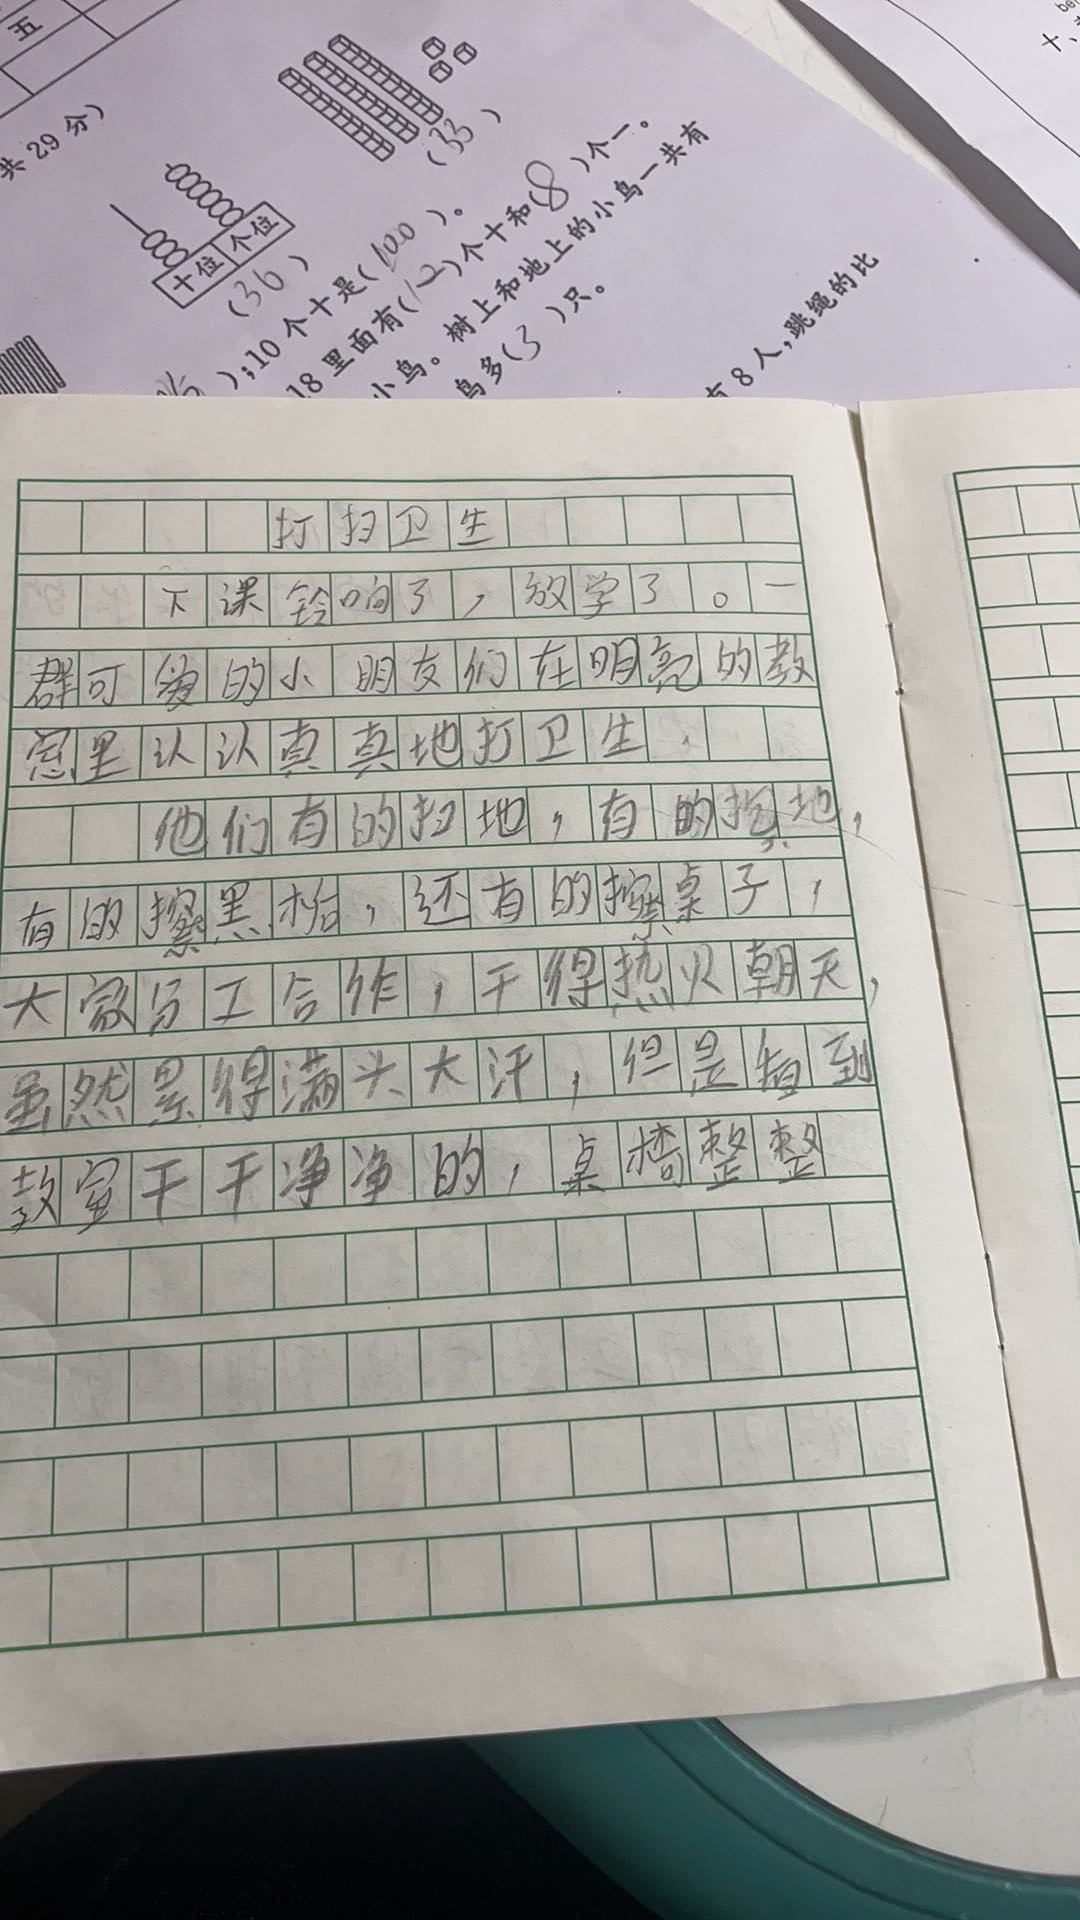 五
共29分)
(33)
十位 个位
(36)
);10个十是(100)。
18里面有(12)个十和(8)个一。
小鸟。树上和地上的小鸟一共有
鸟多(3)只。
有8人,跳绳的比
十、
打扫卫生
下课铃响了，放学了。一
群可爱的小朋友们在明亮的教
室里认认真真地打卫生.
他们有的扫地，有的拖地，
有的擦黑板，还有的擦桌子，
大家分工合作，干得热火朝天，
虽然累得满头大汗，但是看到
教室干干净净的，桌椅整整